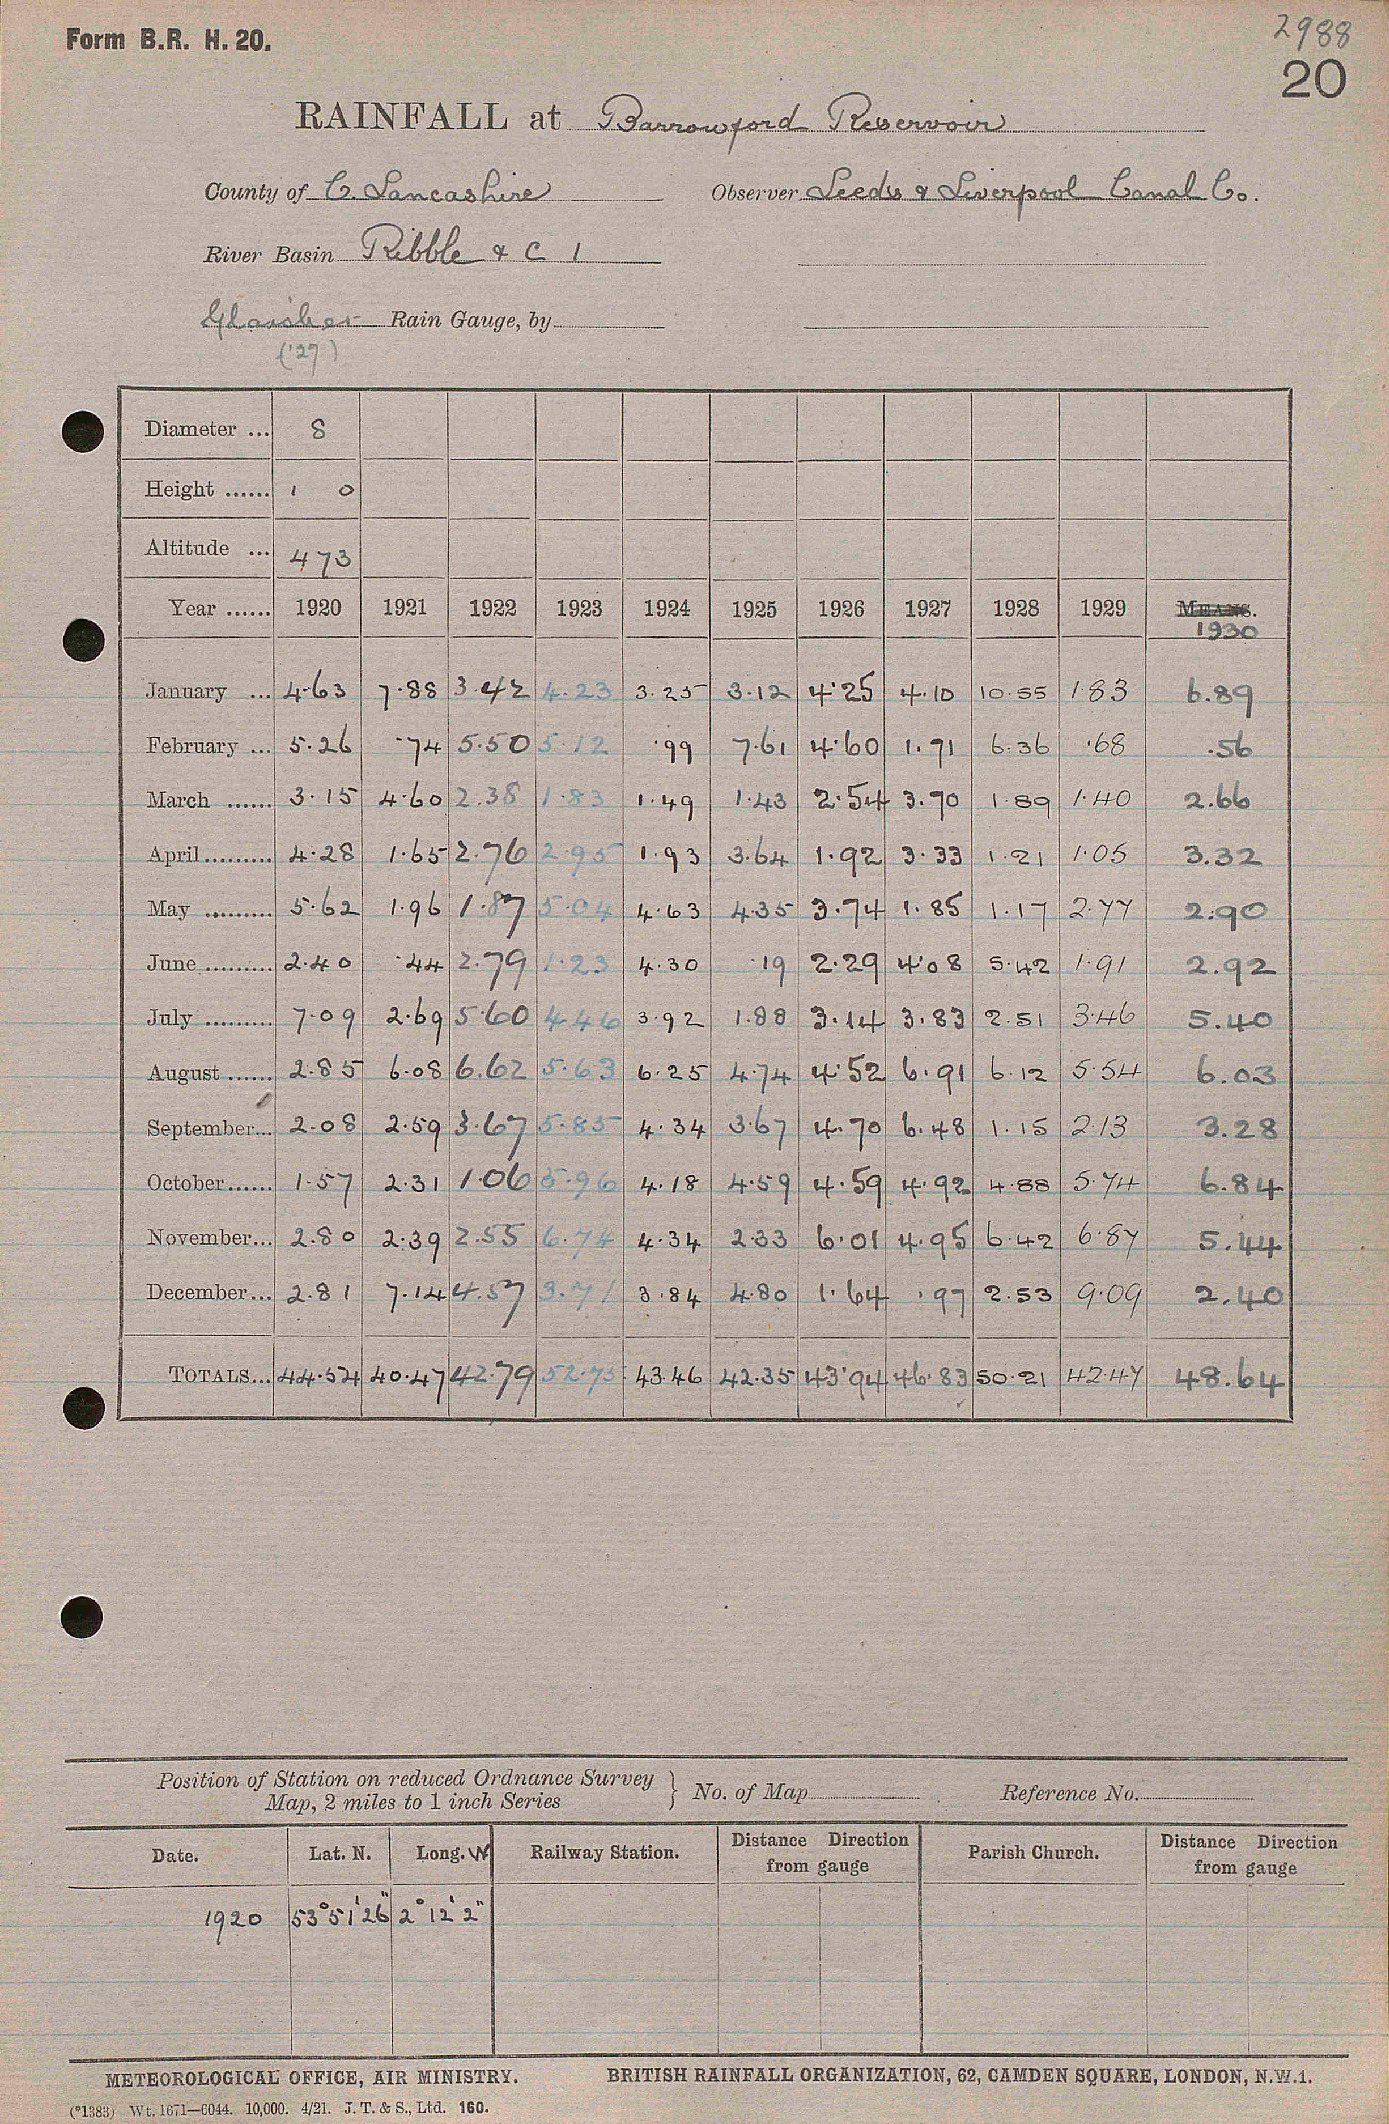 Form B.R. H. 20.
2988
20
RAINFALL at Barrowford Reservoir
County of C. Lancashire Observer Leeds & Liverpool Canal Co.
River Basin Ribble & C 1
Glaisher Rain Gauge, by
('27)
Diameter ... 8
Height ...... 1 0
Altitude ... 473
Year ...... 1920 1921 1922 1923 1924 1925 1926 1927 1928 1929 MEANS.
1930
January ... 4.63 7.88 3.42 4.23 3.25 3.12 4.25 4.10 10.55 1.83 6.89
February ... 5.26 .74 5.50 5.12 .99 7.61 4.60 1.71 6.36 .68 .56
March ...... 3.15 4.60 2.38 1.83 1.49 1.43 2.54 3.70 1.89 1.40 2.66
April ......... 4.28 1.65 2.76 2.95 1.93 3.64 1.92 3.33 1.21 1.05 3.32
May ......... 5.62 1.96 1.87 5.04 4.63 4.35 3.74 1.85 1.17 2.77 2.90
June ......... 2.40 .44 2.79 1.23 4.30 .19 2.29 4.08 5.42 1.91 2.92
July ......... 7.09 2.69 5.60 4.46 3.92 1.88 3.14 3.83 2.51 3.46 5.40
August ...... 2.85 6.08 6.62 5.63 6.25 4.74 4.52 6.91 6.12 5.54 6.03
September... 2.08 2.59 3.67 5.85 4.34 3.67 4.70 6.48 1.15 2.13 3.28
October ...... 1.57 2.31 1.06 5.96 4.18 4.59 4.59 4.92 4.88 5.74 6.84
November... 2.80 2.39 2.55 6.74 4.34 2.33 6.01 4.95 6.42 6.87 5.44
December... 2.81 7.14 4.57 3.71 3.84 4.80 1.64 .97 2.53 9.09 2.40
TOTALS... 44.54 40.47 42.79 52.75 43.46 42.35 43.94 46.83 50.21 42.47 48.64
Position of Station on reduced Ordnance Survey
Map, 2 miles to 1 inch Series } No. of Map Reference No.
Date. Lat. N. Long. W Railway Station. Distance Direction from gauge Parish Church. Distance Direction from gauge
1920 53°51'26" 2°12'2"
METEOROLOGICAL OFFICE, AIR MINISTRY. BRITISH RAINFALL ORGANIZATION, 62, CAMDEN SQUARE, LONDON, N.W.1.
(*1383) Wt. 1671—6044. 10,000. 4/21. J. T. & S., Ltd. 160.